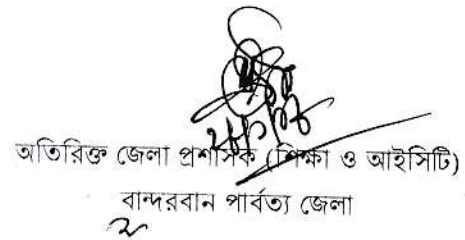 অতিরিক্ত জেলা প্রশাসক (শিক্ষা ও আইসিটি)
বান্দরবান পার্বত্য জেলা